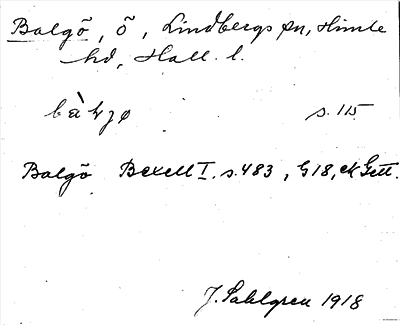 Balgö, ö, Lindbergs sn, Himle
hd, Hall. l.
s. 115
Balgö Bexell I. s. 483, G 18, ek Gett.
J. Sahlgren 1918